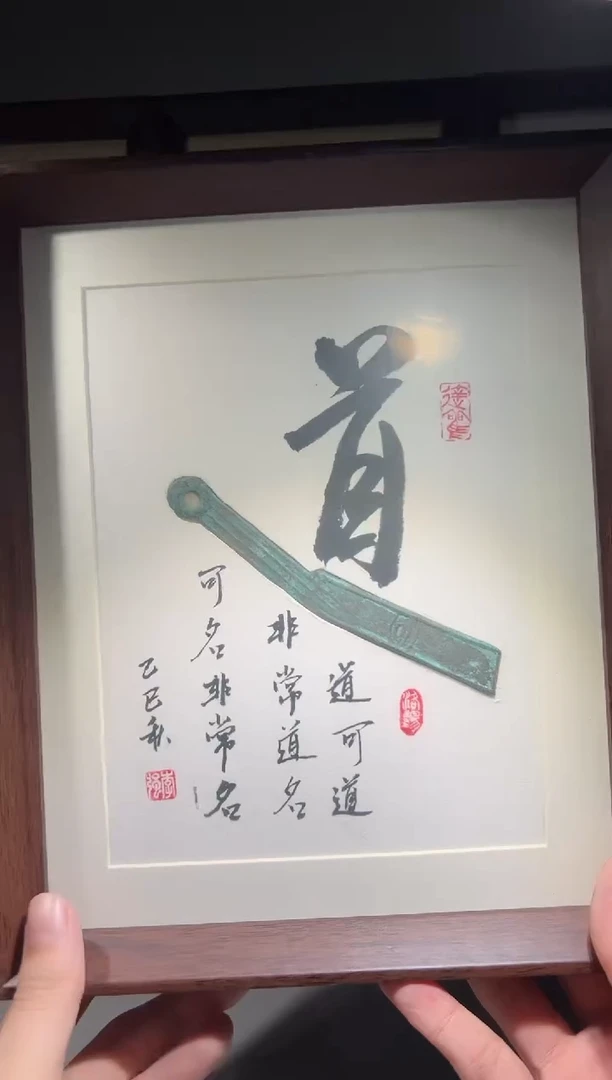 道
道可道
非常道名
可名非常名
乙巳秋
洛陽